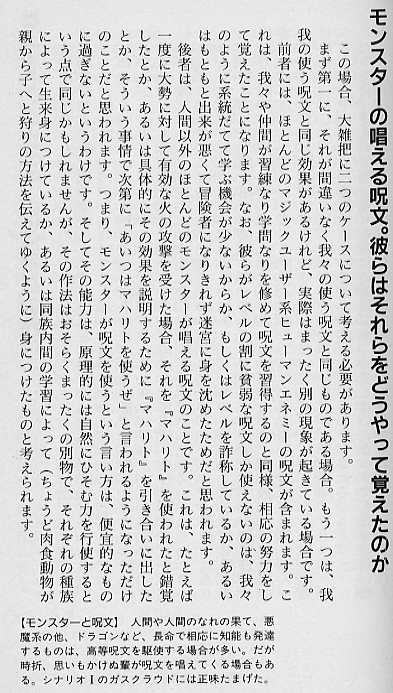 モンスターの唱える呪文。彼らはそれらをどうやって覚えたのか
この場合、大雑把に二つのケースについて考える必要があります。
まず第一に、それが間違いなく我々の使う呪文と同じものである場合。もう一つは、我
我の使う呪文と同じ効果があるけれど、実際はまったく別の現象が起きている場合です。
前者には、ほとんどのマジックユーザー系ヒューマンエネミーの呪文が含まれます。こ
れは、我々や仲間が習練なり学問なりを修めて呪文を習得するのと同様、相応の努力をし
て覚えたことになります。なお、彼らがレベルの割に貧弱な呪文しか使えないのは、我々
のように系統だてて学ぶ機会が少ないからか、もしくはレベルを詐称しているか、あるい
はもともと出来が悪くて冒険者になりきれず迷宮に身を沈めたためだと思われます。
後者は、人間以外のほとんどのモンスターが唱える呪文のことです。これは、たとえば
一度に大勢に対して有効な火の攻撃を受けた場合、それを『マハリト』を使われたと錯覚
したとか、あるいは具体的にその効果を説明するために『マハリト』を引き合いに出した
とか、そういう事情で次第に「あいつはマハリトを使うぜ」と言われるようになっただけ
のことだと思われます。つまり、モンスターが呪文を使うという言い方は、便宜的なもの
に過ぎないというわけです。そしてその能力は、原理的には自然にひそむ力を行使すると
いう点で同じかもしれませんが、その作法はおそらくまったくの別物で、それぞれの種族
によって生来身につけているか、あるいは同族内間の学習によって（ちょうど肉食動物が
親から子へと狩りの方法を伝えてゆくように）身につけたものと考えられます。
【モンスターと呪文】　人間や人間のなれの果て、悪
魔系の他、ドラゴンなど、長命で相応に知能も発達
するものは、高等呪文を駆使する場合が多い。だが
時折、思いもかけぬ輩が呪文を唱えてくる場合もあ
る。シナリオⅠのガスクラウドには正味たまげた。